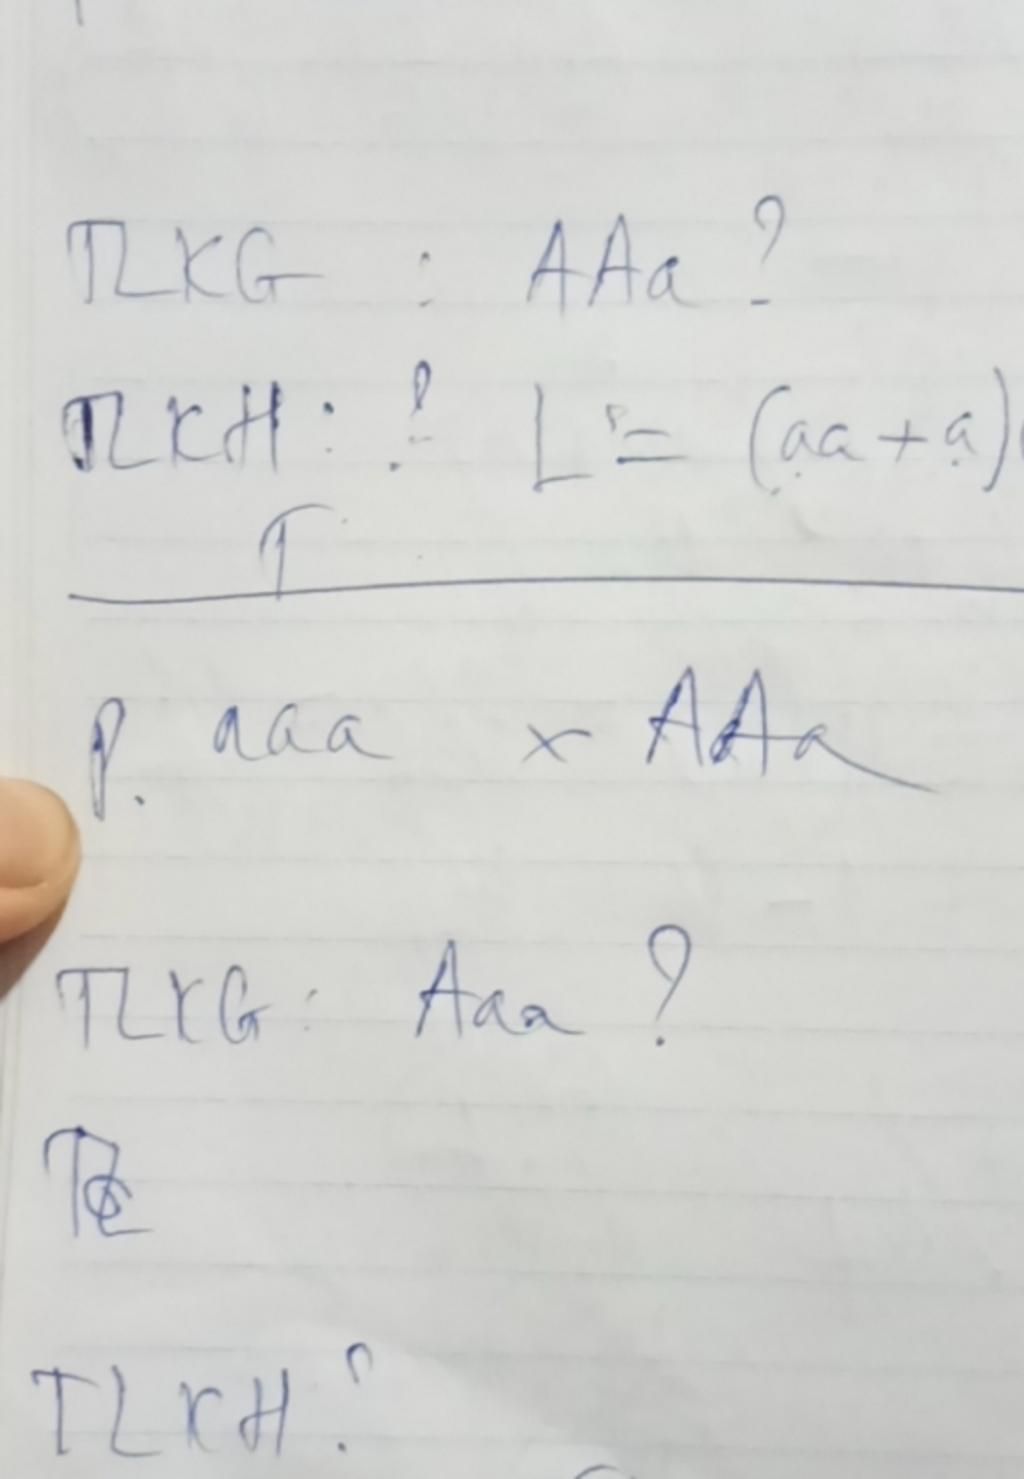 TLKG : AAa ?
TLKH : ? L = (aa + a)
P. aaa x AAa
TLKG : Aaa ?
TLKH ?